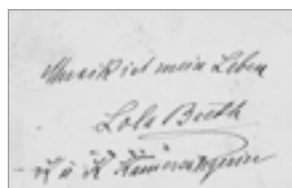 Musik ist mein Leben
Lola Beeth
k. u. k. Kammersängerin